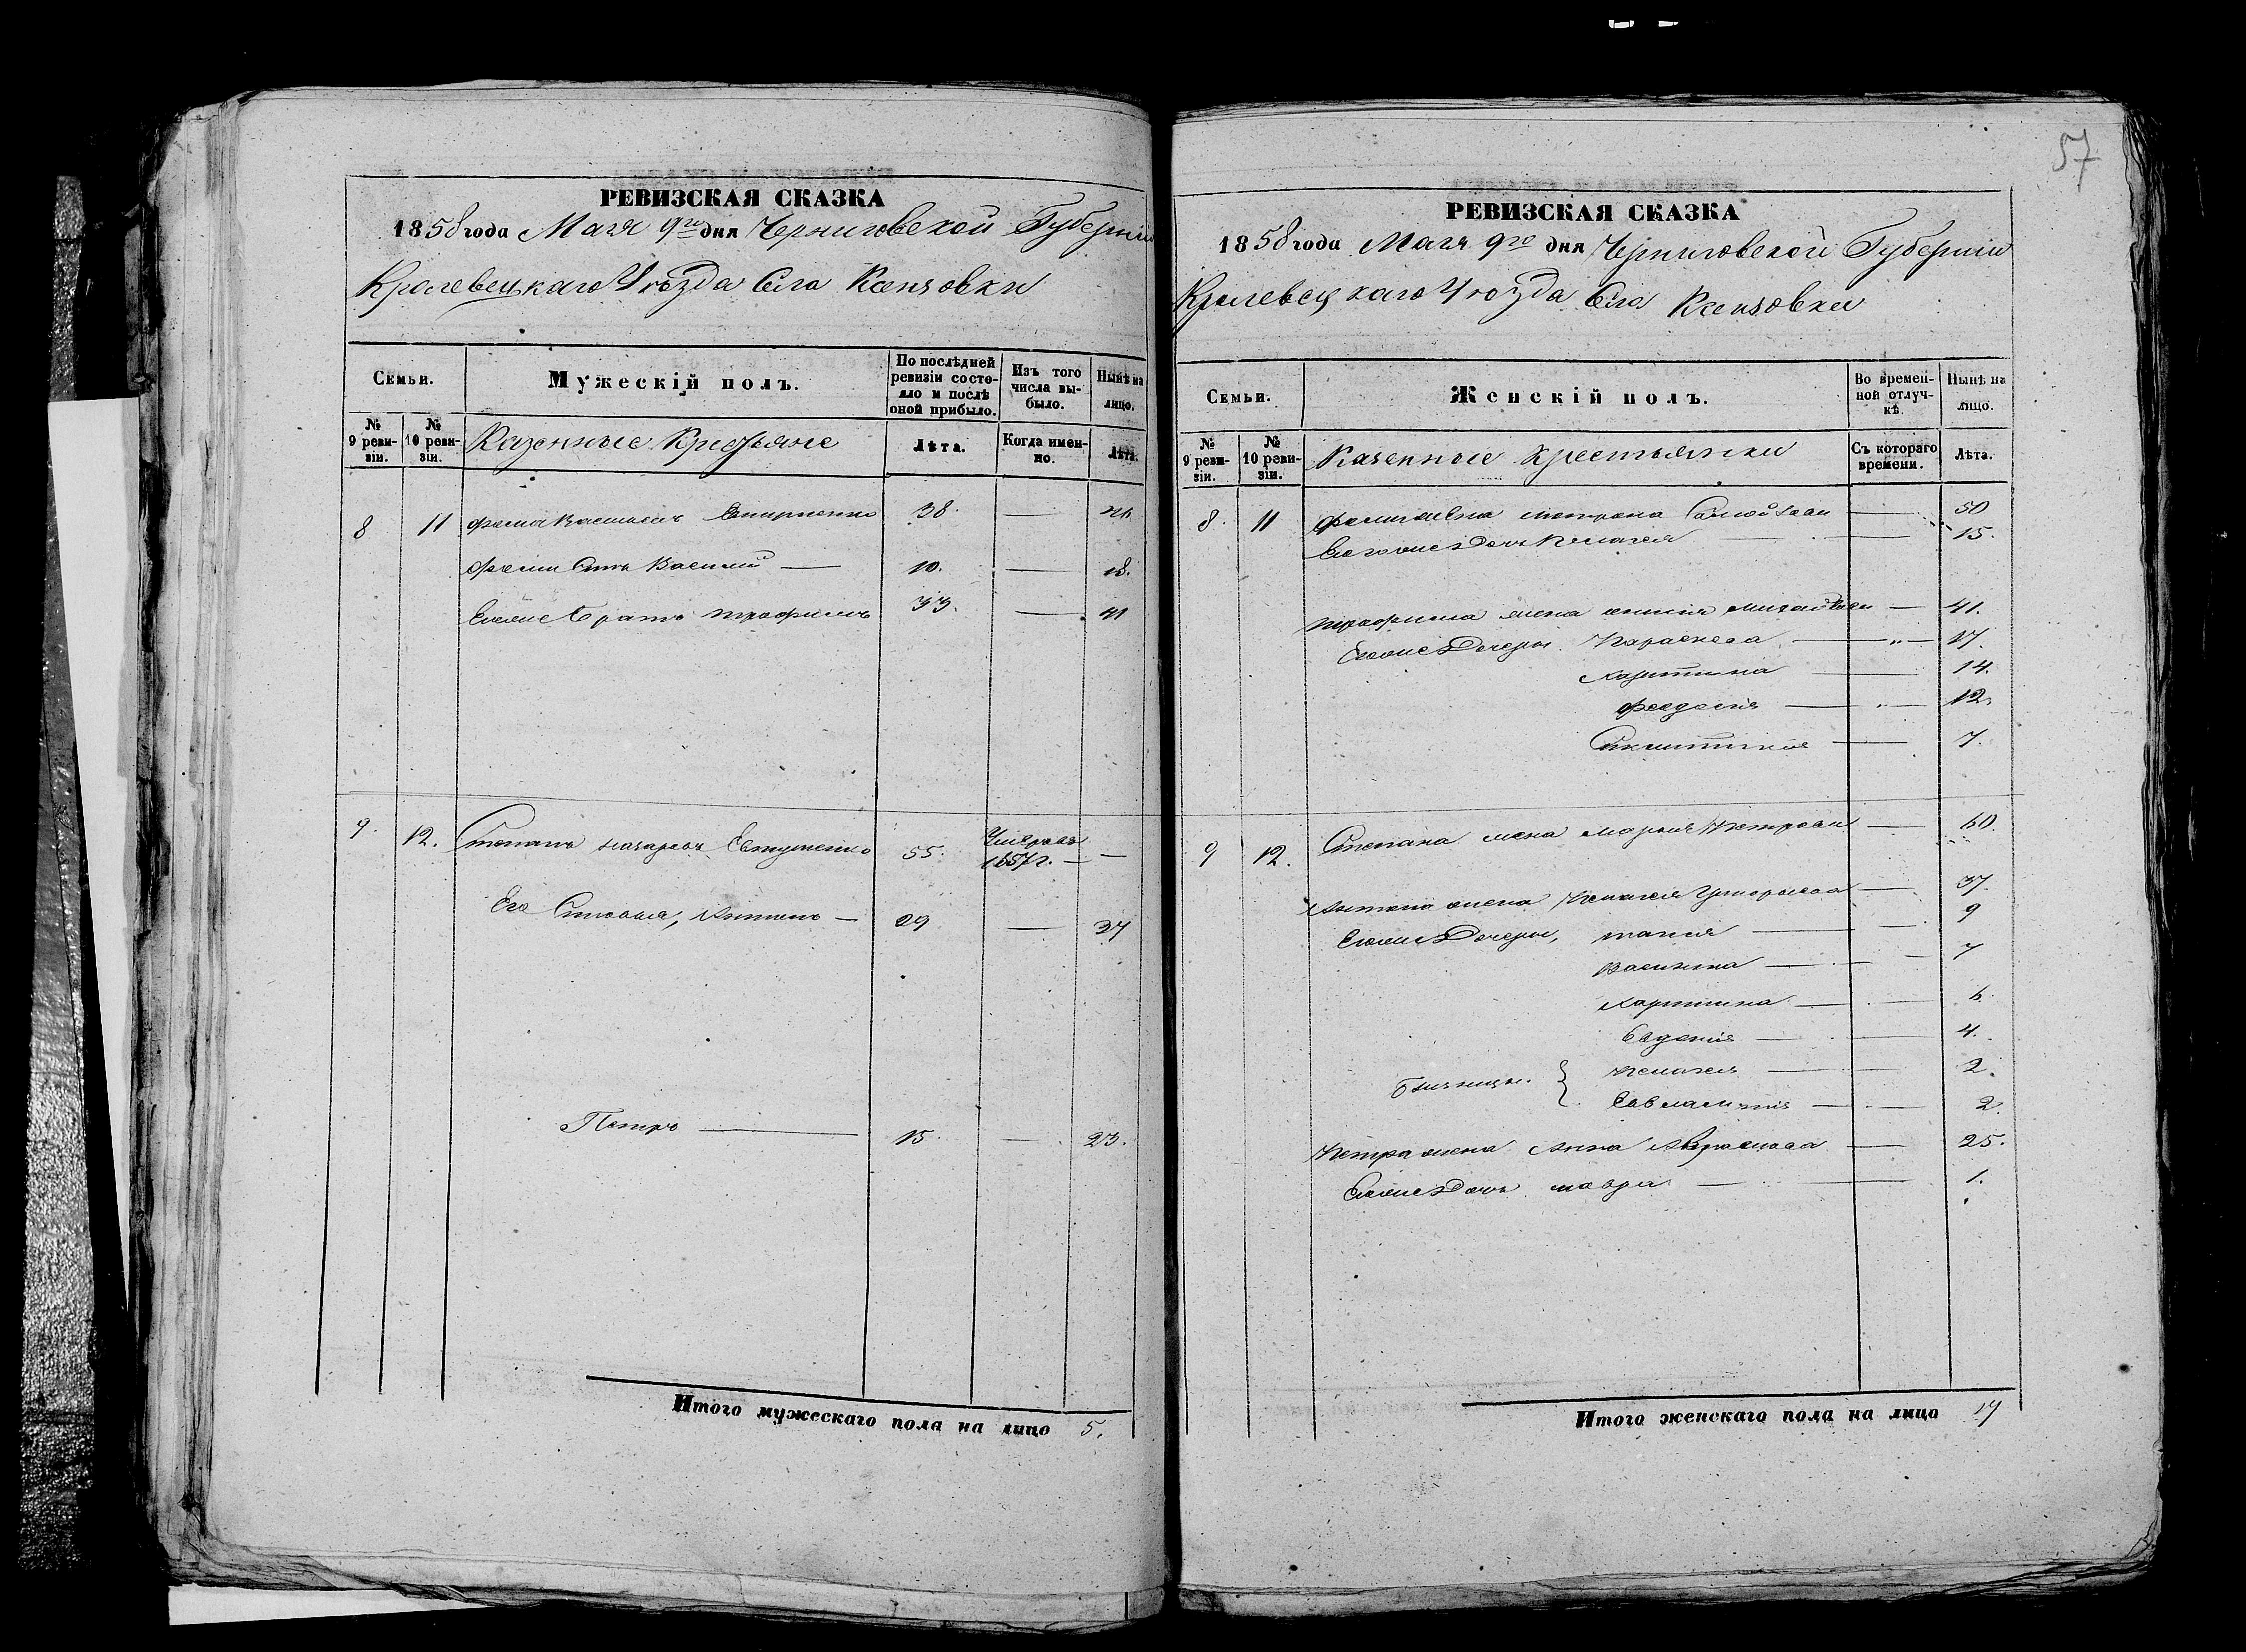 57
РЕВИЗСКАЯ СКАЗКА
1858 года Мая 9го дня Черниговской Губерніи
Кролевецкаго Уѣзда Села
Семьи.
Мужескій полъ.
По послѣдней ревизіи состояло и послѣ оной прибыло.
Изъ того числа выбыло.
Нынѣ на лицо.
№ 9 ревизіи.
№ 10 ревизіи.
Казенные Крестьяне
Лѣта.
Когда именно.
Лѣта.
8 11 Фома Васильевъ 38. —
Фомы Сынъ Василий — 10. — 18.
Егоже Братъ Трофимъ 33. — 41
9. 12. Степанъ Назаровъ Евтушенко 55. Умеръ въ 1857 г. — —
Его Сыновья, Антонъ — 29 — 37
Петръ — 15. — 23.
Итого мужескаго пола на лицо 5.
РЕВИЗСКАЯ СКАЗКА
1858 года Мая 9го дня Черниговской Губерніи
Кролевецкаго Уѣзда Села
Семьи.
Женскій полъ.
Во временной отлучкѣ.
Нынѣ на лицо.
№ 9 ревизіи.
№ 10 ревизіи.
Казенные крестьянки
Съ котораго времени.
Лѣта.
8. 11 жена — 50
Егоже Дочь Пелагея — 15.
Трофима жена — 41.
Егоже Дочери Параскева — „ — 17.
Харитина — 14.
Феодосія — „ — 12.
— 7.
9 12. Степана жена Марья Петрова — 60.
Антона жена Пелагея Григорьева — 37.
Егоже Дочери, — 9
Василиса — 7
Харитина — 6.
Евдокія — 4.
Близницы { Пелагея — 2.
— 2.
Петра жена Анна — 25.
Егоже Дочь Мавра — 1.
Итого женскаго пола на лицо 17